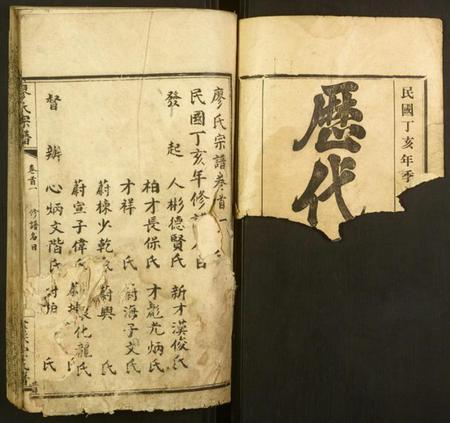 民國丁亥年季
歷代
廖氏宗譜卷首一
民國丁亥年修譜名目
發起人彬德賢氏 新才漢俊氏
柏才長保氏 才彪光炳氏
才祥氏 蔚海子文氏
蔚棟少乾氏 蔚興氏
蔚宣子偉氏 化龍氏
督辦心炳文階氏 蔚坤氏
廖氏宗譜
卷首一
修譜名目